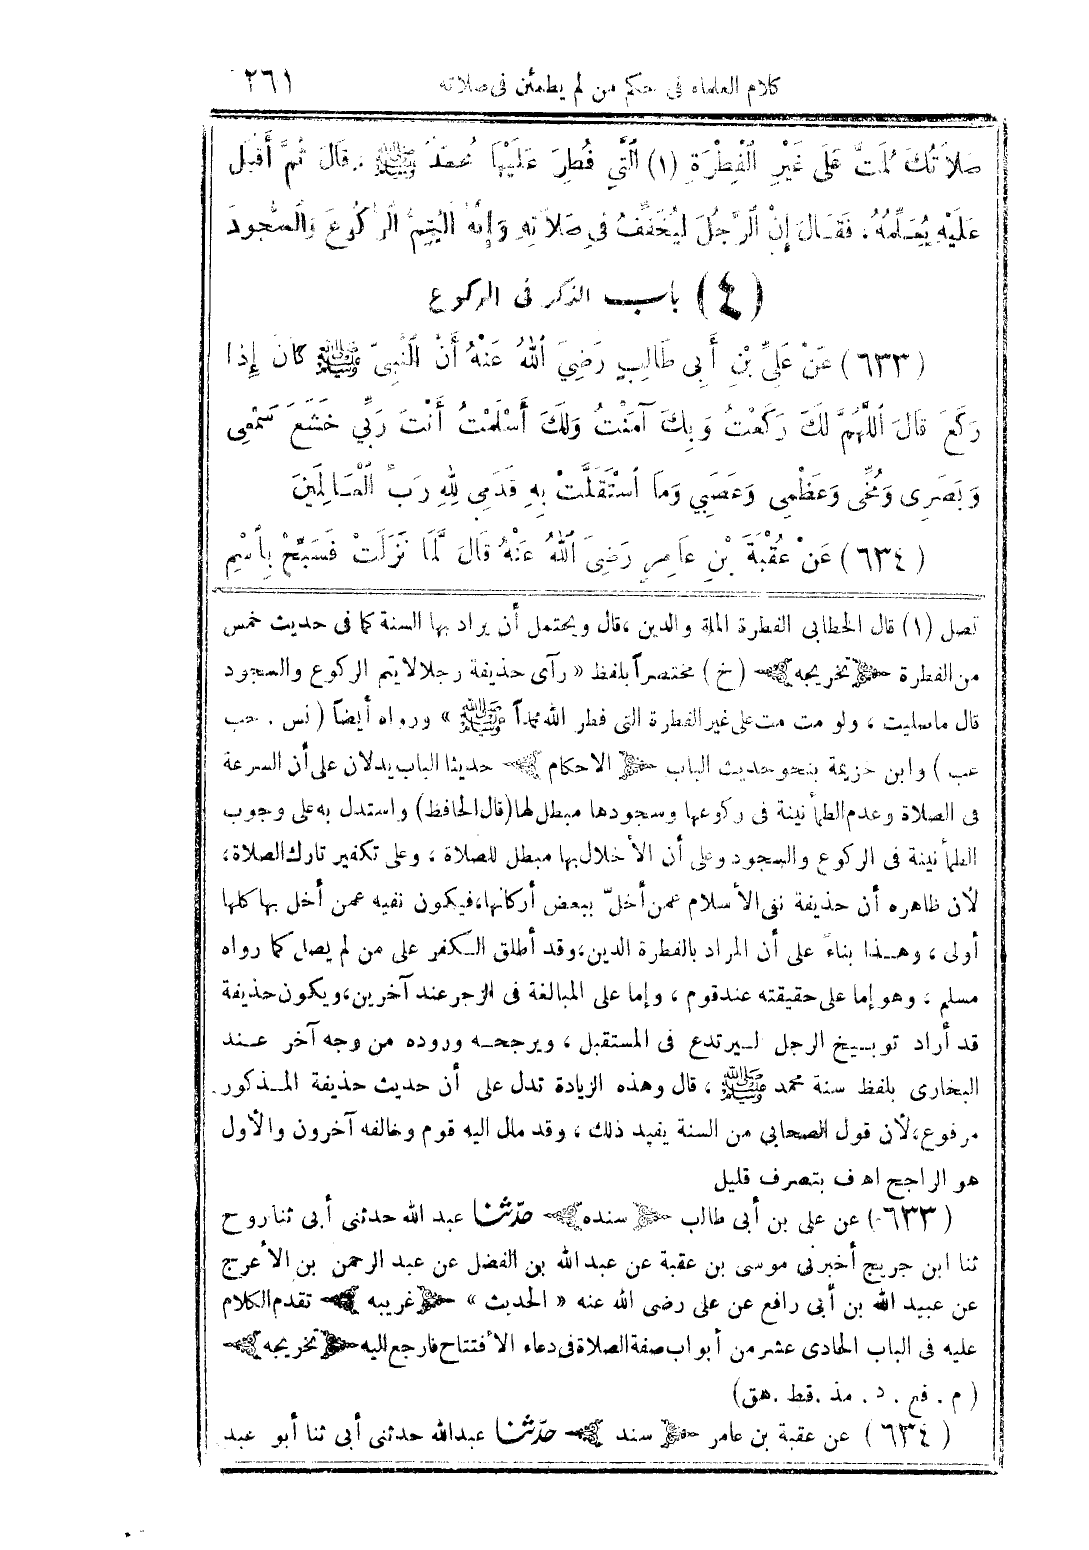 كلام العلماء فى حكم من لم يطمئن فى صلاته ٢٦١
صَلاَتُكَ مُتَّ عَلَى غَيْرِ الْفِطْرَةِ (١) الَّتِي فُطِرَ عَلَيْهَا مُحَمَّدٌ ﷺ . قَالَ ثُمَّ أَقْبَلَ
عَلَيْهِ يُعَلِّمُهُ . فَقَالَ إِنَّ الرَّجُلَ لَيُخَفِّفُ فِي صَلاَتِهِ وَإِنَّهُ لَيُتِمُّ الرُّكُوعَ وَالسُّجُودَ
(٤) باب الذكر فى الركوع
(٦٣٣) عَنْ عَلِيِّ بْنِ أَبِى طَالِبٍ رَضِيَ اللهُ عَنْهُ أَنَّ النَّبِيَّ ﷺ كَانَ إِذَا
رَكَعَ قَالَ اللَّهُمَّ لَكَ رَكَعْتُ وَبِكَ آمَنْتُ وَلَكَ أَسْلَمْتُ أَنْتَ رَبِّي خَشَعَ سَمْعِى
وَبَصَرِى وَمُخِّى وَعَظْمِى وَعَصَبِي وَمَا اسْتَقَلَّتْ بِهِ قَدَمِى لِلهِ رَبِّ الْعَالَمِينَ
(٦٣٤) عَنْ عُقْبَةَ بْنِ عَامِرٍ رَضِىَ اللهُ عَنْهُ قَالَ لَمَّا نَزَلَتْ فَسَبِّحْ بِاسْمِ
تصل (١) قال الخطابى الفطرة الملة والدين ،قال ويحتمل أن يراد بها السنة كما فى حديث خمس
من الفطرة ﴿تخريجه﴾ (خ) مختصراً بلفظ « رآى حذيفة رجلا لا يتم الركوع والسجود
قال ماصليت ، ولو مت مت على غير الفطرة التى فطر الله محمداً ﷺ » ورواه أيضاً (نس . حب
عب ) وابن خزيمة بنحو حديث الباب ﴿ الاحكام ﴾ حديثا الباب يدلان على أن السرعة
فى الصلاة وعدم الطمأنينة فى ركوعها وسجودها مبطل لها (قال الحافظ) واستدل به على وجوب
الطمأنينة فى الركوع والسجود وعلى أن الأخلال بها مبطل للصلاة ، وعلى تكفير تارك الصلاة،
لأن ظاهره أن حذيفة نفى الأسلام عمن أخلّ ببعض أركانها،فيكون نفيه عمن أخل بها كلها
أولى ، وهـذا بناءً على أن المراد بالفطرة الدين،وقد أطلق الـكفر على من لم يصل كما رواه
مسلم ، وهو إما على حقيقته عند قوم ، وإما على المبالغة فى الزجر عند آخرين،ويكون حذيفة
قد أراد توبـيخ الرجل لـيرتدع فى المستقبل ، ويرجحـه وروده من وجه آخر عـند
البخارى بلفظ سنة محمد ﷺ ، قال وهذه الزيادة تدل على أن حديث حذيفة المـذكور
مرفوع،لأن قول الصحابى من السنة يفيد ذلك ، وقد مال اليه قوم وخالفه آخرون والأول
هو الراجح اهـ ف بتصرف قليل
(٦٣٣) عن على بن أبى طالب ﴿سنده﴾ حدّثنا عبد الله حدثنى أبى ثنا روح
ثنا ابن جريج أخبرنى موسى بن عقبة عن عبد الله بن الفضل عن عبد الرحمن بن الأعرج
عن عبيد الله بن أبى رافع عن على رضى الله عنه « الحديث » ﴿غريبه﴾ تقدم الكلام
عليه فى الباب الحادى عشر من أبواب صفة الصلاة فى دعاء الأفتتاح فارجع اليه ﴿تخريجه﴾
( م . فع . د . مذ . قط . هق)
(٦٣٤) عن عقبة بن عامر ﴿سند﴾ حدّثنا عبد الله حدثنى أبى ثنا أبو عبد